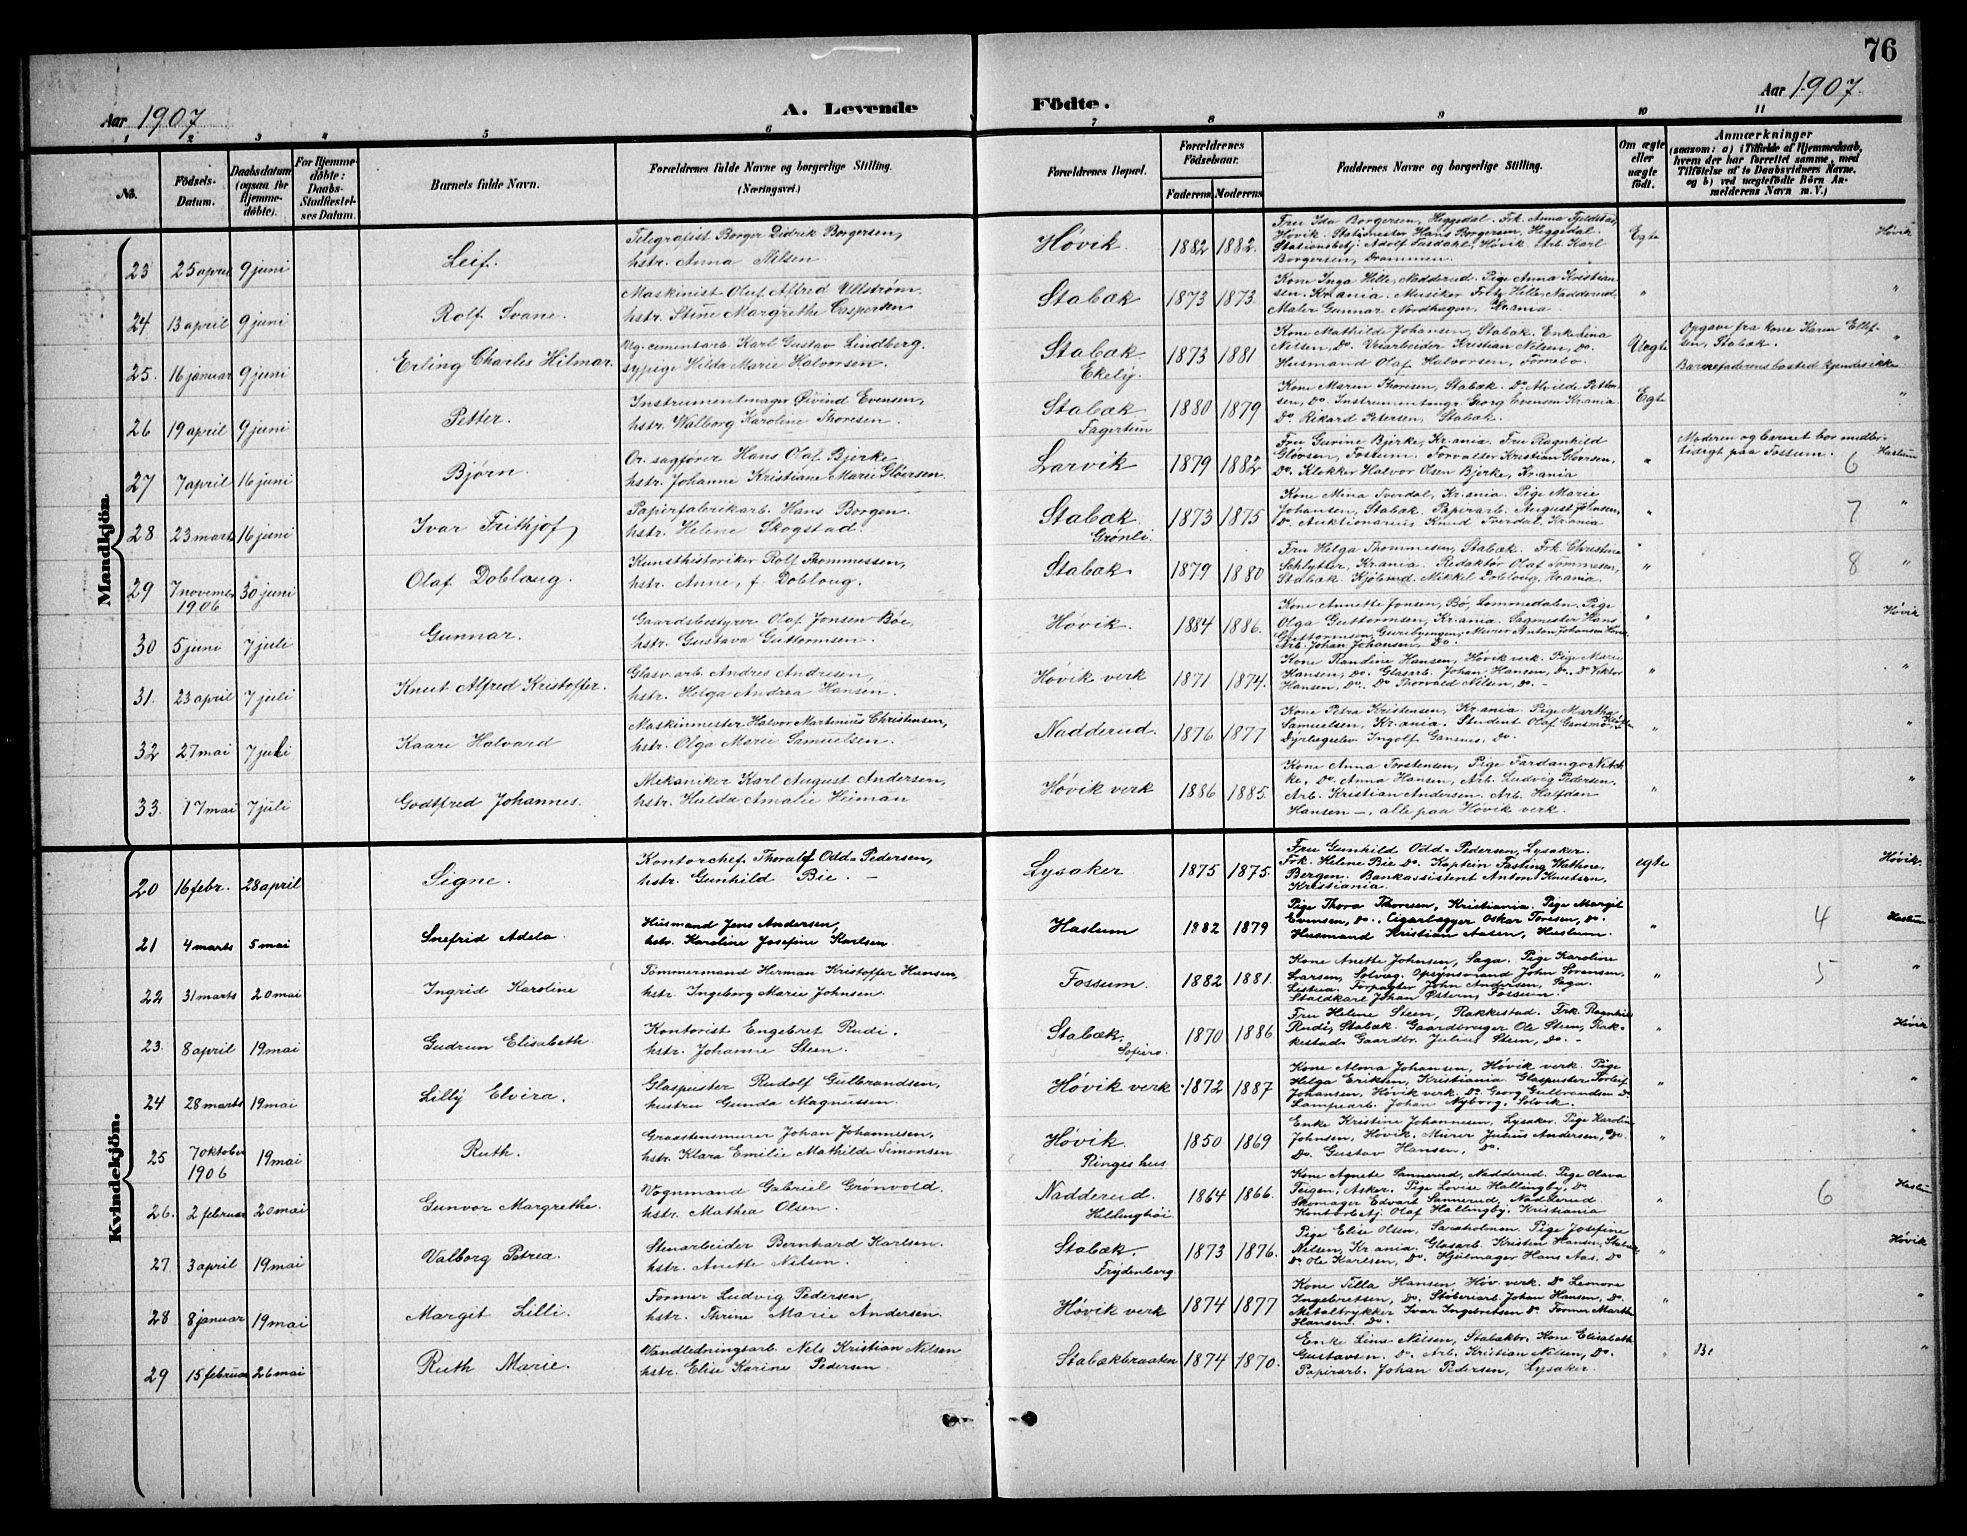 76
Aar 1907
A. Levende
Födte.
Aar 1907.
1 2 3 4 5 6 7 8 9 10 11
No.
Födsels-Datum.
Daabsdatum (ogsaa for Hjemme-döbte).
For Hjemme-döbte: Daabs-Stadfæstel-ses Datum.
Barnets fulde Navn.
Forældrenes fulde Navne og borgerlige Stilling. (Næringsvei.)
Forældrenes Bopæl.
Forældrenes Födselsaar.
Faderens Moderens
Faddernes Navne og borgerlige Stilling.
Om ægte eller uægte födt.
Anmærkninger
(saasom: a) i Tilfælde af Hjemmedaab, hvem der har forrettet samme, med Tilföielse af to Daabsvidners Navne. og b) ved uægtefödte Börn An-melderens Navn m. V.)
Mandkjön.
23 25 april 9 juni Leif. Telegrafist Borger Didrik Borgersen, hstr. Anna Nilsen Høvik. 1882 1882. Fru Ida Borgersen, Heggedal. Frk. Anna Fjeldstad, Høvik. Stationsmester Hans Borgersen, Heggedal. Stationsbetj. Adolf Fasdahl, Høvik. Arb. Karl Borgersen, Drammen. Egte Høvik
24 13 april 9 juni Rolf Svane. Maskinist Oluf Alfred Ullstrøm, hstr. Stine Margrethe Caspersen Stabæk 1873 1873. Kone Inga Hille, Nadderud. Pige Anna Kristiansen, Kr.ania. Musiker Fritz Hille, Nadderud. Maler Gunnar Nordhagen, Kr.ania " "
25. 16 januar 9 juni Erling Charles Hilmar. Ug. cementarb. Karl Gustav Lindberg. sypige Hilda Marie Halvorsen. Stabæk Ekely. 1873 1881 Kone Mathilde Johansen, Stabæk. Enke Lina Nilsen, Do. Veiarbeider Kristian Nilsen, Do. Husmand Olaf Halvorsen, Fornebo Uægte Opgave fra kone Karen Ellefsen, Stabæk. Barnefaderens bosted kjendes ikke "
26 19 april 9 juni Petter. Instrumentmager Øivind Evensen, hstr. Walborg Karoline Thoresen. Stabæk Fagertun 1880 1879 Kone Maren Thoresen, Stabæk. Do Alvilde Pettersen, Do. Instrumentmgr. Georg Evensen Kr.ania Do. Rikard Petersen, Stabæk. Egte "
27 7 april 16 juni Bjørn. Or. sagfører Hans Olaf Bjerke hstr. Johanne Kristiane Marie Gløersen. Larvik 1879 1882 Fru Gurine Bjerke, Kr.ania. Fru Ragnhild Gløersen, Fossum. Forvalter Kristian Gløersen, Do. Klokker Halvor Olsen Bjerke, Kr.ania " Moderen og barnet bor midlertidigt paa Fossum. 6 Haslum
28 23 marts 16 juni Ivar Frithjof Papirfabrikarb. Hans Borgen. hstr. Helene Skogstad. Stabæk. Grønli. 1873 1875 Kone Mina Tverdal, Kr.ania. Pige Marie Johansen, Stabæk. Papirarb. August Johnsen, Do. Auktionarius Knud Tverdal, Kr.ania " 7 "
29 7 november 1906 30 juni Olaf Dobloug. Kunsthistoriker Rolf Thommessen, hstr. Anne, f. Dobloug. Stabæk. 1879 1880 Fru Helga Thommesen, Stabæk. Frk. Christine Schlytter, Kr.ania. Redaktør Olaf Tommesen, Stabæk. Kjøbmd. Mikkel Dobloug, Kr.ania " 8 "
30 5 juni 7 juli Gunnar. Gaardsbestyrer Olaf Jonsen Bøe, hstr. Gustava Guttormsen. Høvik. 1884 1886. Kone Annette Jonsen, Bø, Lommedalen. Pige Olga Guttormsen, Kr.ania. Sagmester Hans Guttormsen, Guribyengen. Murer Anton Johansen Arb. Johan Johansen, Do. " Høvik
31. 23 april 7 juli Knut Alfred Kristoffer. Glasv. arb. Andres Andresen, hstr. Helga Andrea Hansen. Høvik verk 1871 1874. Kone Randine Hansen, Høvik verk. Pige Marie Hansen, Do. Glasarb. Johan Hansen, Do. Do Viktor Hansen, Do. Do Thorvald Nilsen, Do. " "
32 27 mai 7 juli Kaare Halvard Maskinmester Halvor Martenius Christensen, hstr. Olga Marie Samuelsen. Nadderud. 1876 1877 Kone Petra Kristensen, Kr.ania. Pige Martha Samuelsen, Kr.ania. Student Olaf Gansmo, Dyrlægeelev Ingolf Gansnes, Do. " "
33. 17 mai 7 juli Godtfred Johannes. Mekaniker Karl August Andersen, hstr. Hulda Amalie Heiman Høvik verk 1886 1885. Kone Anna Torstensen, Pige Fardango Nitchke, Do. Anna Hansen, Arb. Ludvig Pedersen. Arb. Kristian Andersen. Arb. Halfdan Hansen —, alle paa Høvik verk. " "
Kvindekjön.
20 16 febr. 28 april Signe. Kontorchef. Thoralf Odd-Pedersen, hstr. Gunhild Bie. — Lysaker 1875 1875. Fru Gunhild Odd-Pedersen, Lysaker. Frk. Helene Bie Do. Kaptein Fasting Wathne, Bergen. Bankassistent Anton Knutsen, Kristiania. egte Høvik.
21 4 marts 5 mai Snefrid Adela. Husmand Jens Andersen, hstr. Karoline Josefine Karlsen Haslum 1882 1879 Pige Thora Thoresen, Kristiania. Pige Margit Evensen, Do. Cigarlægger Oskar Toresen, Do. Husmand Kristian Aasen, Haslum. " 4 Haslum
22 31 marts 20 mai Ingrid Karoline Tømmermand Herman Kristoffer Hansen, hstr. Ingeborg Marie Johnsen. Fossum. 1882 1881. Kone Anette Johnsen, Saga. Pige Karoline Larsen, Solvag. Opsynsmand John Sørensen, Listua. Forpagter John Andersen, Saga. Staldkarl Johan Østern, Fossum. " 5 "
23. 8 april 19 mai Gudrun Elisabeth. Kontorist Engebret Rudi. hstr. Johanne Steen. Stabæk. Sofiero. 1870 1886 Fru Helene Steen, Rakkestad. Frk. Ragnhild Rudi, Stabæk. Gaardbruger Ole Steen, Rakkestad. Gaardbr. Julius Steen, Do. " Høvik
24 28 marts 19 mai Lilly Elvira. Glaspuster Rudolf Gulbrandsen, hustru Gunda Magnussen. Høvik verk 1872 1887 Kone Alma Johansen, Høvik verk. Pige Helga Eriksen, Kristiania. Glaspuster Torleif Johansen, Høvik verk. Do. Georg Gulbrandsen Do Lampearb. Johan Nyborg, Solvik. " "
25 7 oktober 1906 19 mai Ruth. Graastensmurer Johan Johannesen, hstr. Klara Emilie Mathilde Simonsen Høvik. Ringishus 1850 1869 Enke Kristine Johannesen, Lysaker. Pige Karolin Johnsen, Høvik. Murer Julius Andersen, Do. Do. Gustav Hansen, Do. " "
26. 2 februar 20 mai Gunvor Margrethe. Vognmand Gabriel Grønvold. hstr. Mathea Olsen. Nadderud. Heldinghøi 1864 1866. Kone Agnete Sannerud, Nadderud. Pige Olava Teigen, Asker. Pige Lovise Hallingby, Do. Skomager Edvart Sannerud, Nadderud Kontorbetj. Olaf Hallingby, Kristiania " 6 Haslum
27 3 april 19 mai Valborg Petrea. Stenarbeider Bernhard Karlsen. hstr. Anette Nilsen. Stabæk. Frydenberg 1873 1876. Pige Elise Olsen, Saraholmen. Pige Josefine Nilsen, Kr.ania. Glasarb. Kristen Hansen, Stabæk Do. Ole Karlsen, Do. Hjulmager Hans Aas. Do " Høvik
28 8 januar 19 mai Margit Lilli. Former Ludvig Pedersen, hstr. Thrine Marie Andersen. Høvik verk 1874 1877 Kone Tilla Hansen, Høv. verk. Do Leonora Ingebretsen, Do. Støberiarb. Johan Hansen, Do. Metaltrykker Ivar Ingebretsen Do. Former Marth. Hansen. Do. " "
29 15 februar 26 mai Ruth Marie. Vandledningsarb. Nels Kristian Nilsen hstr. Elise Karine Pedersen Stabækbraaten 1874 1870. Enke Lina Nilsen, Stabækbr. Kone Elisabeth Gustavsen. Do. Arb. Kristian Nilsen, Do. Papirarb. Johan Pedersen, Lysaker. " "